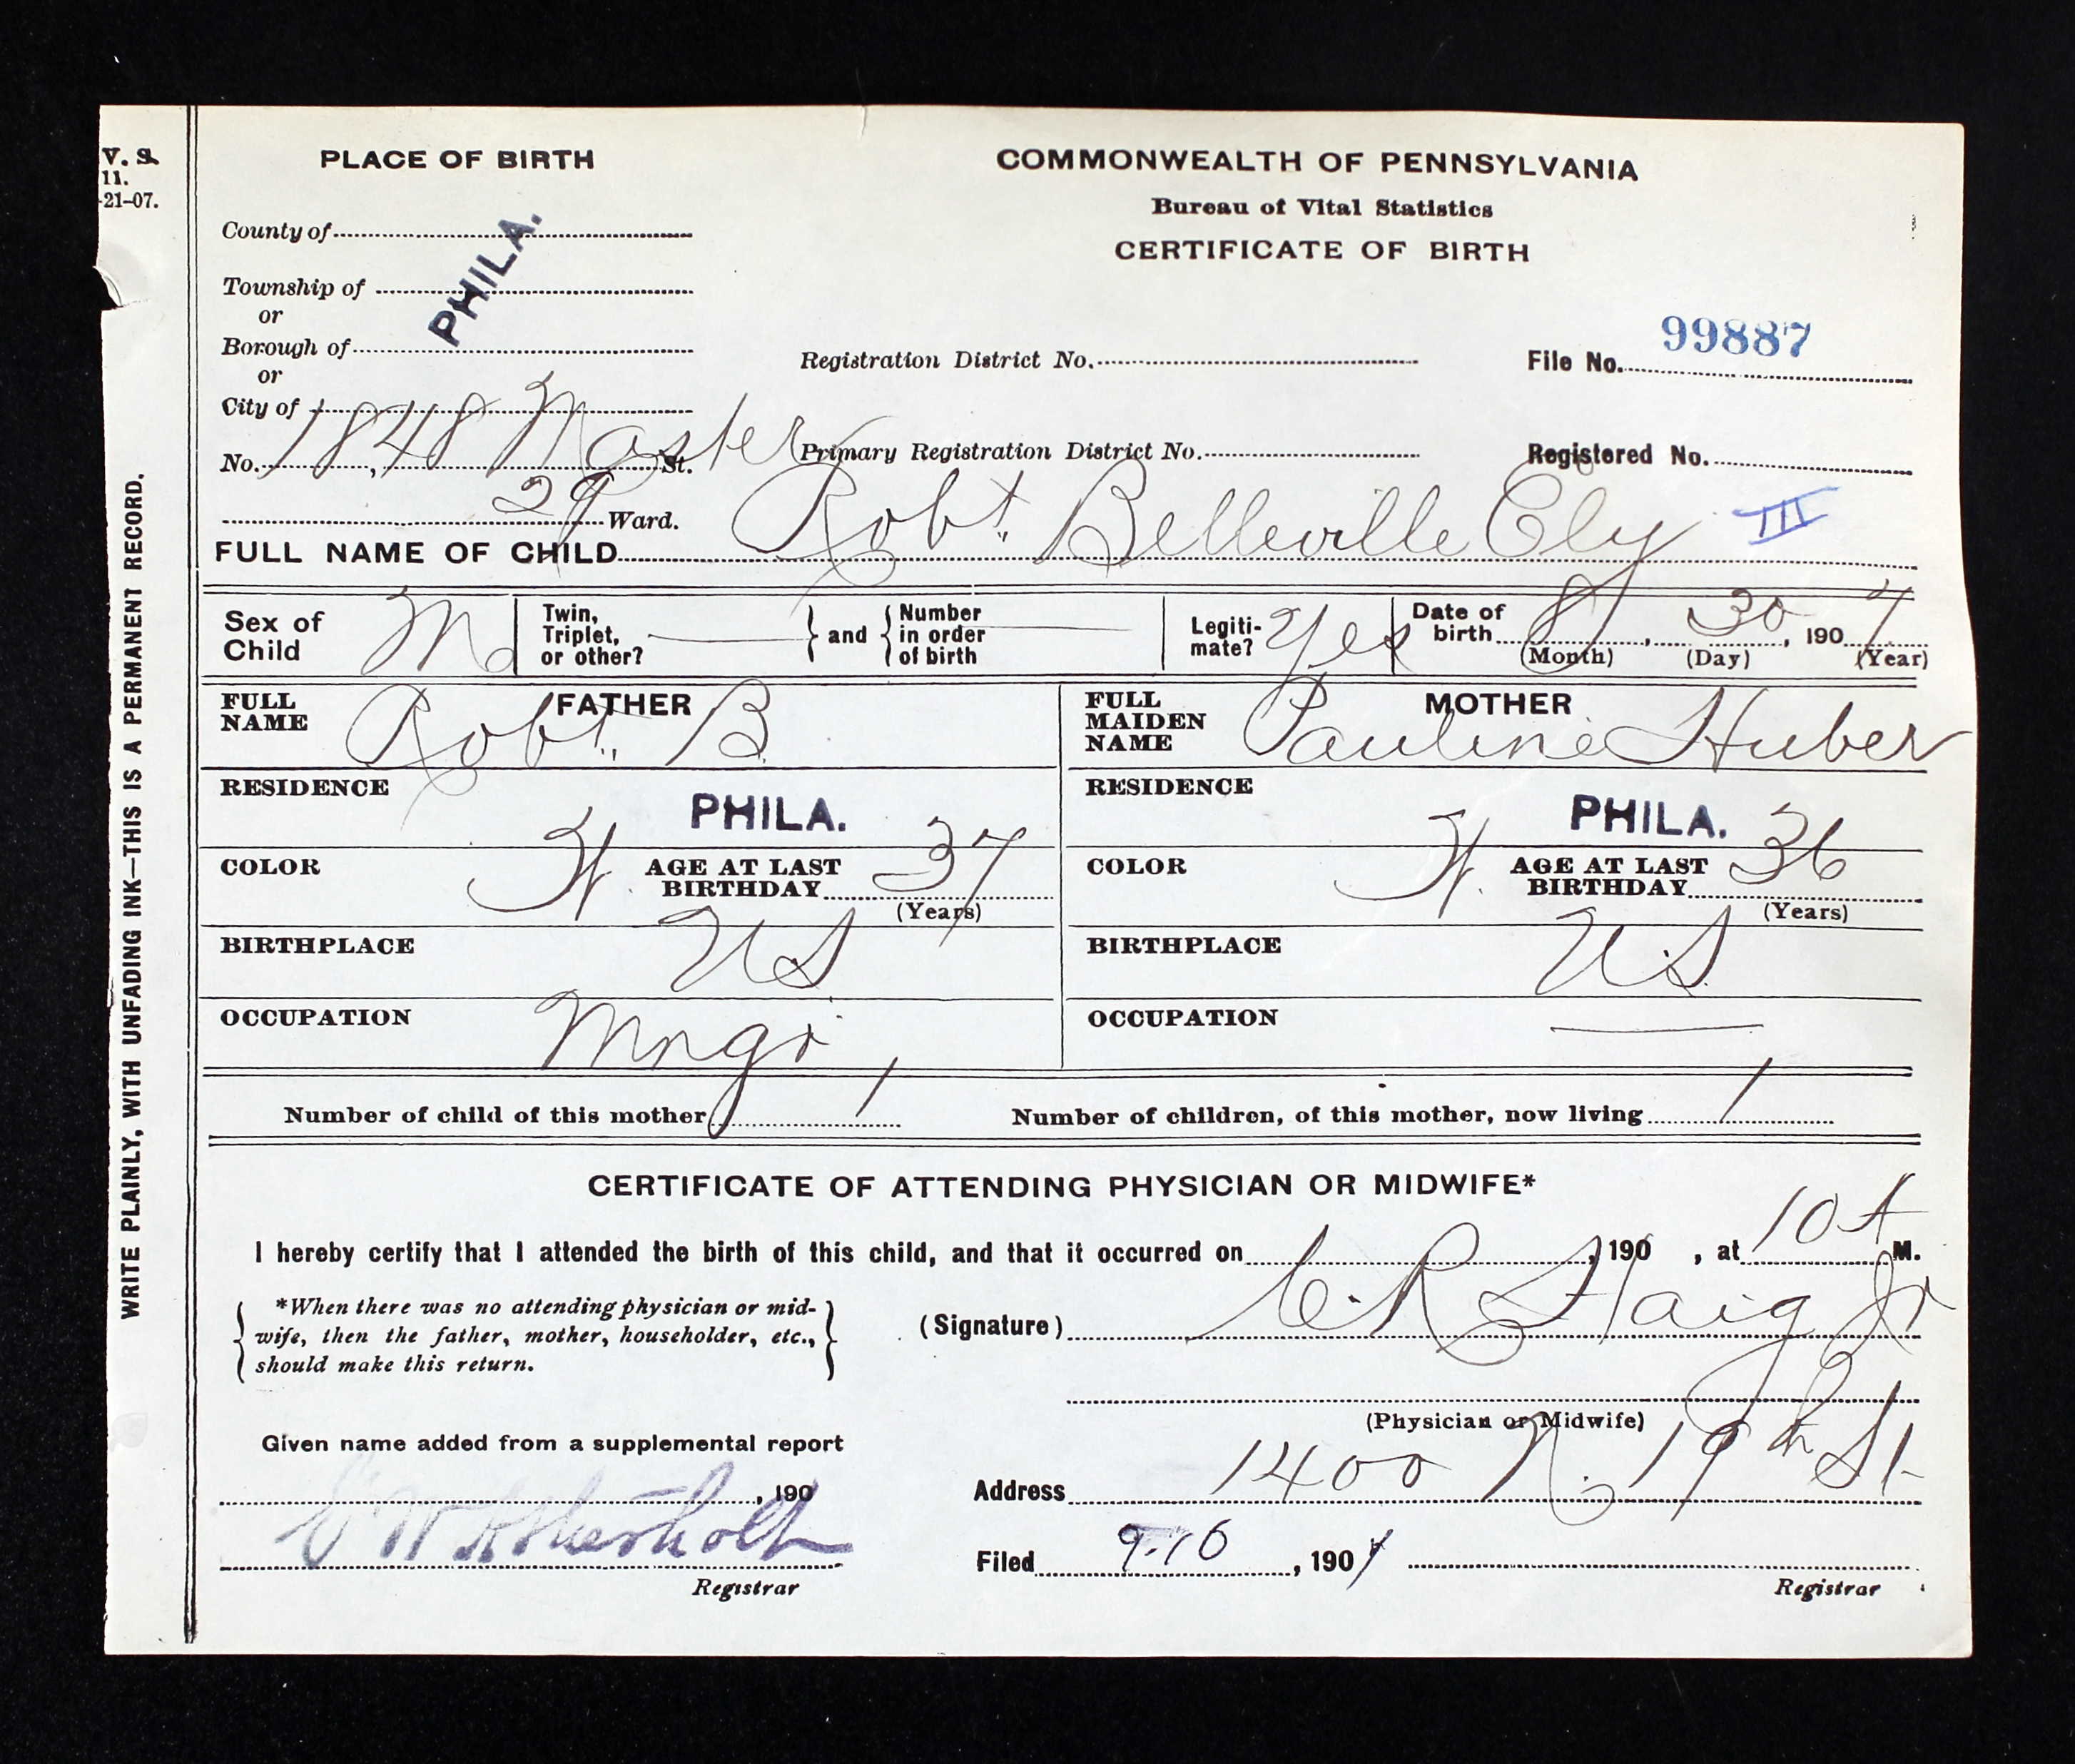 V. S.
11.
-21-07.
WRITE PLAINLY, WITH UNFADING INK—THIS IS A PERMANENT RECORD.
PLACE OF BIRTH
COMMONWEALTH OF PENNSYLVANIA
Bureau of Vital Statistics
CERTIFICATE OF BIRTH
County of
PHILA.
Township of
or
Borough of
or
City of
Registration District No.
File No. 99887
No. 1848 Master St.
Primary Registration District No.
Registered No.
29 Ward.
FULL NAME OF CHILD Robt. Belleville Ely III
Sex of Child M
Twin, Triplet, or other? } and { Number in order of birth
Legiti-mate? Yes
Date of birth 8, 30, 1907
(Month) (Day) (Year)
FATHER
FULL NAME Robt. B.
RESIDENCE PHILA.
COLOR W. AGE AT LAST BIRTHDAY 37
(Years)
BIRTHPLACE US
OCCUPATION Mngr
MOTHER
FULL MAIDEN NAME Pauline Huber
RESIDENCE PHILA.
COLOR W. AGE AT LAST BIRTHDAY 36
(Years)
BIRTHPLACE U.S.
OCCUPATION
Number of child of this mother 1
Number of children, of this mother, now living 1
CERTIFICATE OF ATTENDING PHYSICIAN OR MIDWIFE*
I hereby certify that I attended the birth of this child, and that it occurred on , 190 , at 10 A M.
{ *When there was no attending physician or mid-
wife, then the father, mother, householder, etc.,
should make this return. }
(Signature) C. R. Haig Jr
(Physician or Midwife)
Given name added from a supplemental report
, 190
Registrar
Address 1400 N. 19th St
Filed 9-16, 1907
Registrar